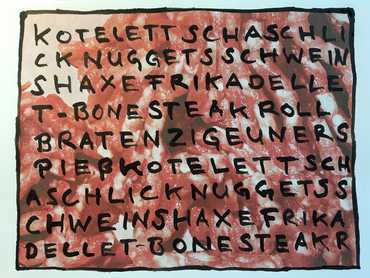 KOTELETTSCHASCHLI
CKNUGGETSSCHWEIN
SHAXEFRIKADELLE
T-BONESTEAKROLL
BRATENZIGEUNERS
PIEßKOTELETTSCH
ASCHLICKNUGGETSS
CHWEINSHAXEFRIKA
DELLET-BONESTEAKR